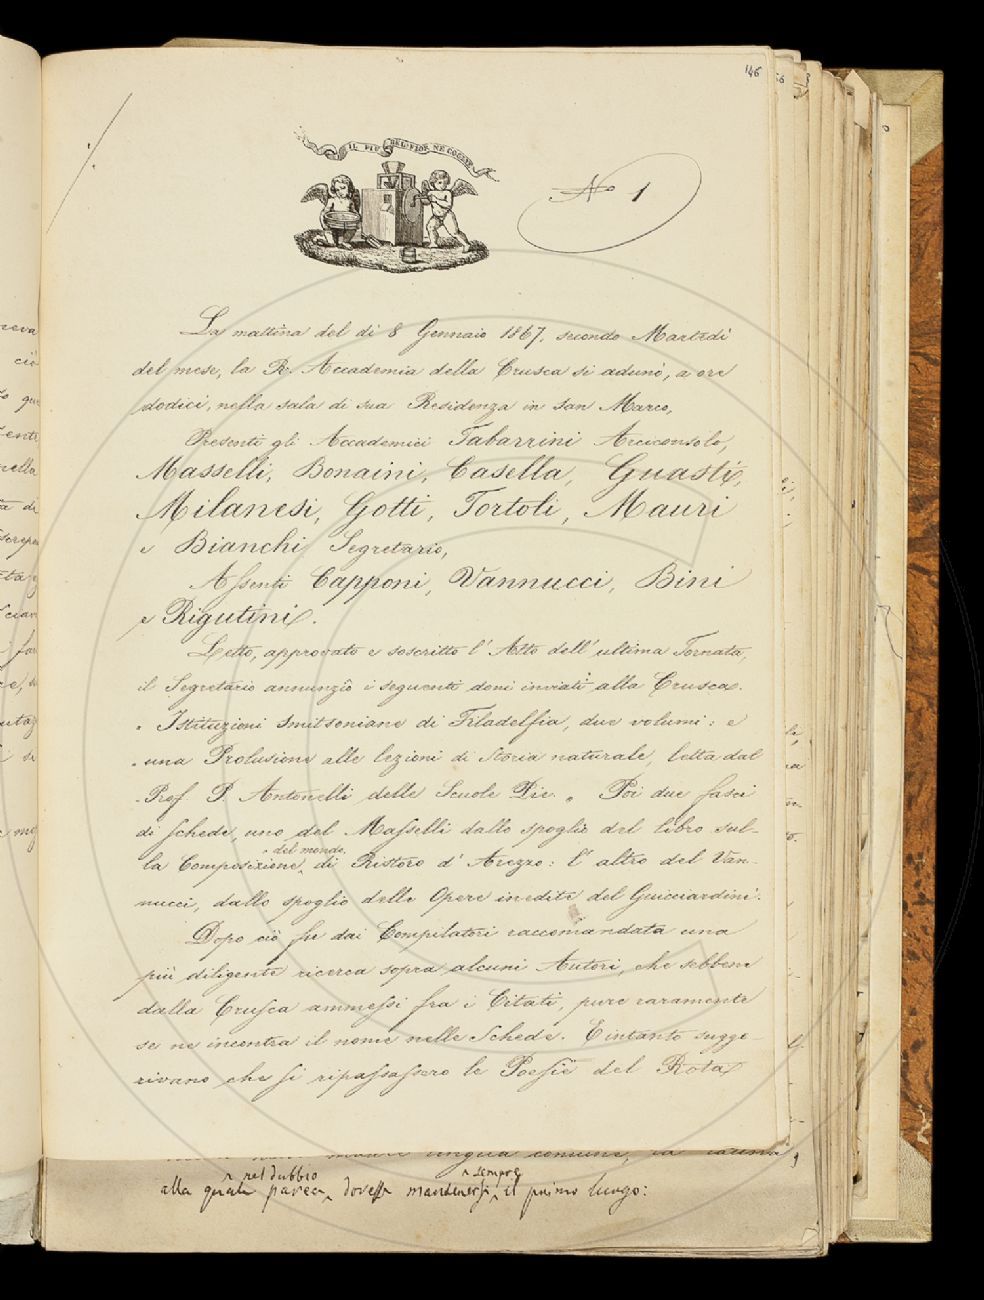 146
IL PIÙ BEL FIOR NE COGLIE
No 1
La mattina del dì 8 Gennaio 1867, secondo Martedì
del mese, la R. Accademia della Crusca si adunò, a ore
dodici, nella sala di sua Residenza in San Marco,
Presenti gli Accademici Tabarrini Arciconsolo,
Masselli, Bonaini, Casella, Guasti,
Milanesi, Gotti, Tortoli, Mauri
e Bianchi Segretario,
Assenti Capponi, Vannucci, Bini
e Rigutini.
Letto, approvato e soscritto l' Atto dell' ultima Tornata,
il Segretario annunziò i seguenti doni inviati alla Crusca.
" Istituzioni Smitsoniane di Filadelfia, due volumi: e
" una Prolusione alle lezioni di Storia naturale, letta dal
" Prof. P. Antonelli delle Scuole Pie. " Poi due fasci
di schede, uno del Masselli dallo spoglio del libro sul-
la Composizione del mondo di Ristoro d' Arezzo: l' altro del Van-
nucci, dallo spoglio delle Opere inedite del Guicciardini.
Dopo ciò fu dai Compilatori raccomandata una
più diligente ricerca sopra alcuni Autori, che sebbene
dalla Crusca ammessi fra i Citati, pure raramente
se ne incontra il nome nelle Schede. E intanto sugge-
rivano che si ripassassero le Poesie del Rota
lingua comune, la
alla quale parea nel dubbio dovesse mantenersi sempre il primo luogo: